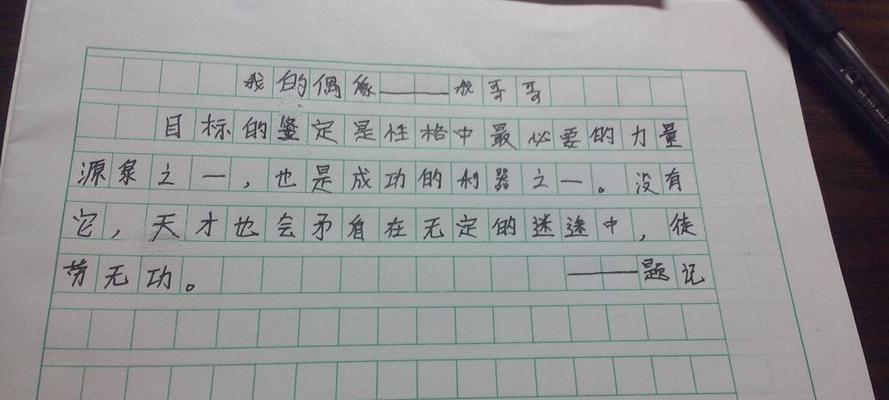 我的偶像——权哥哥
目标的鉴定是性格中最必要的力量
源泉之一,也是成功的利器之一。没有
它,天才也会矛盾在无定的迷途中,徒
劳无功。 ——题记